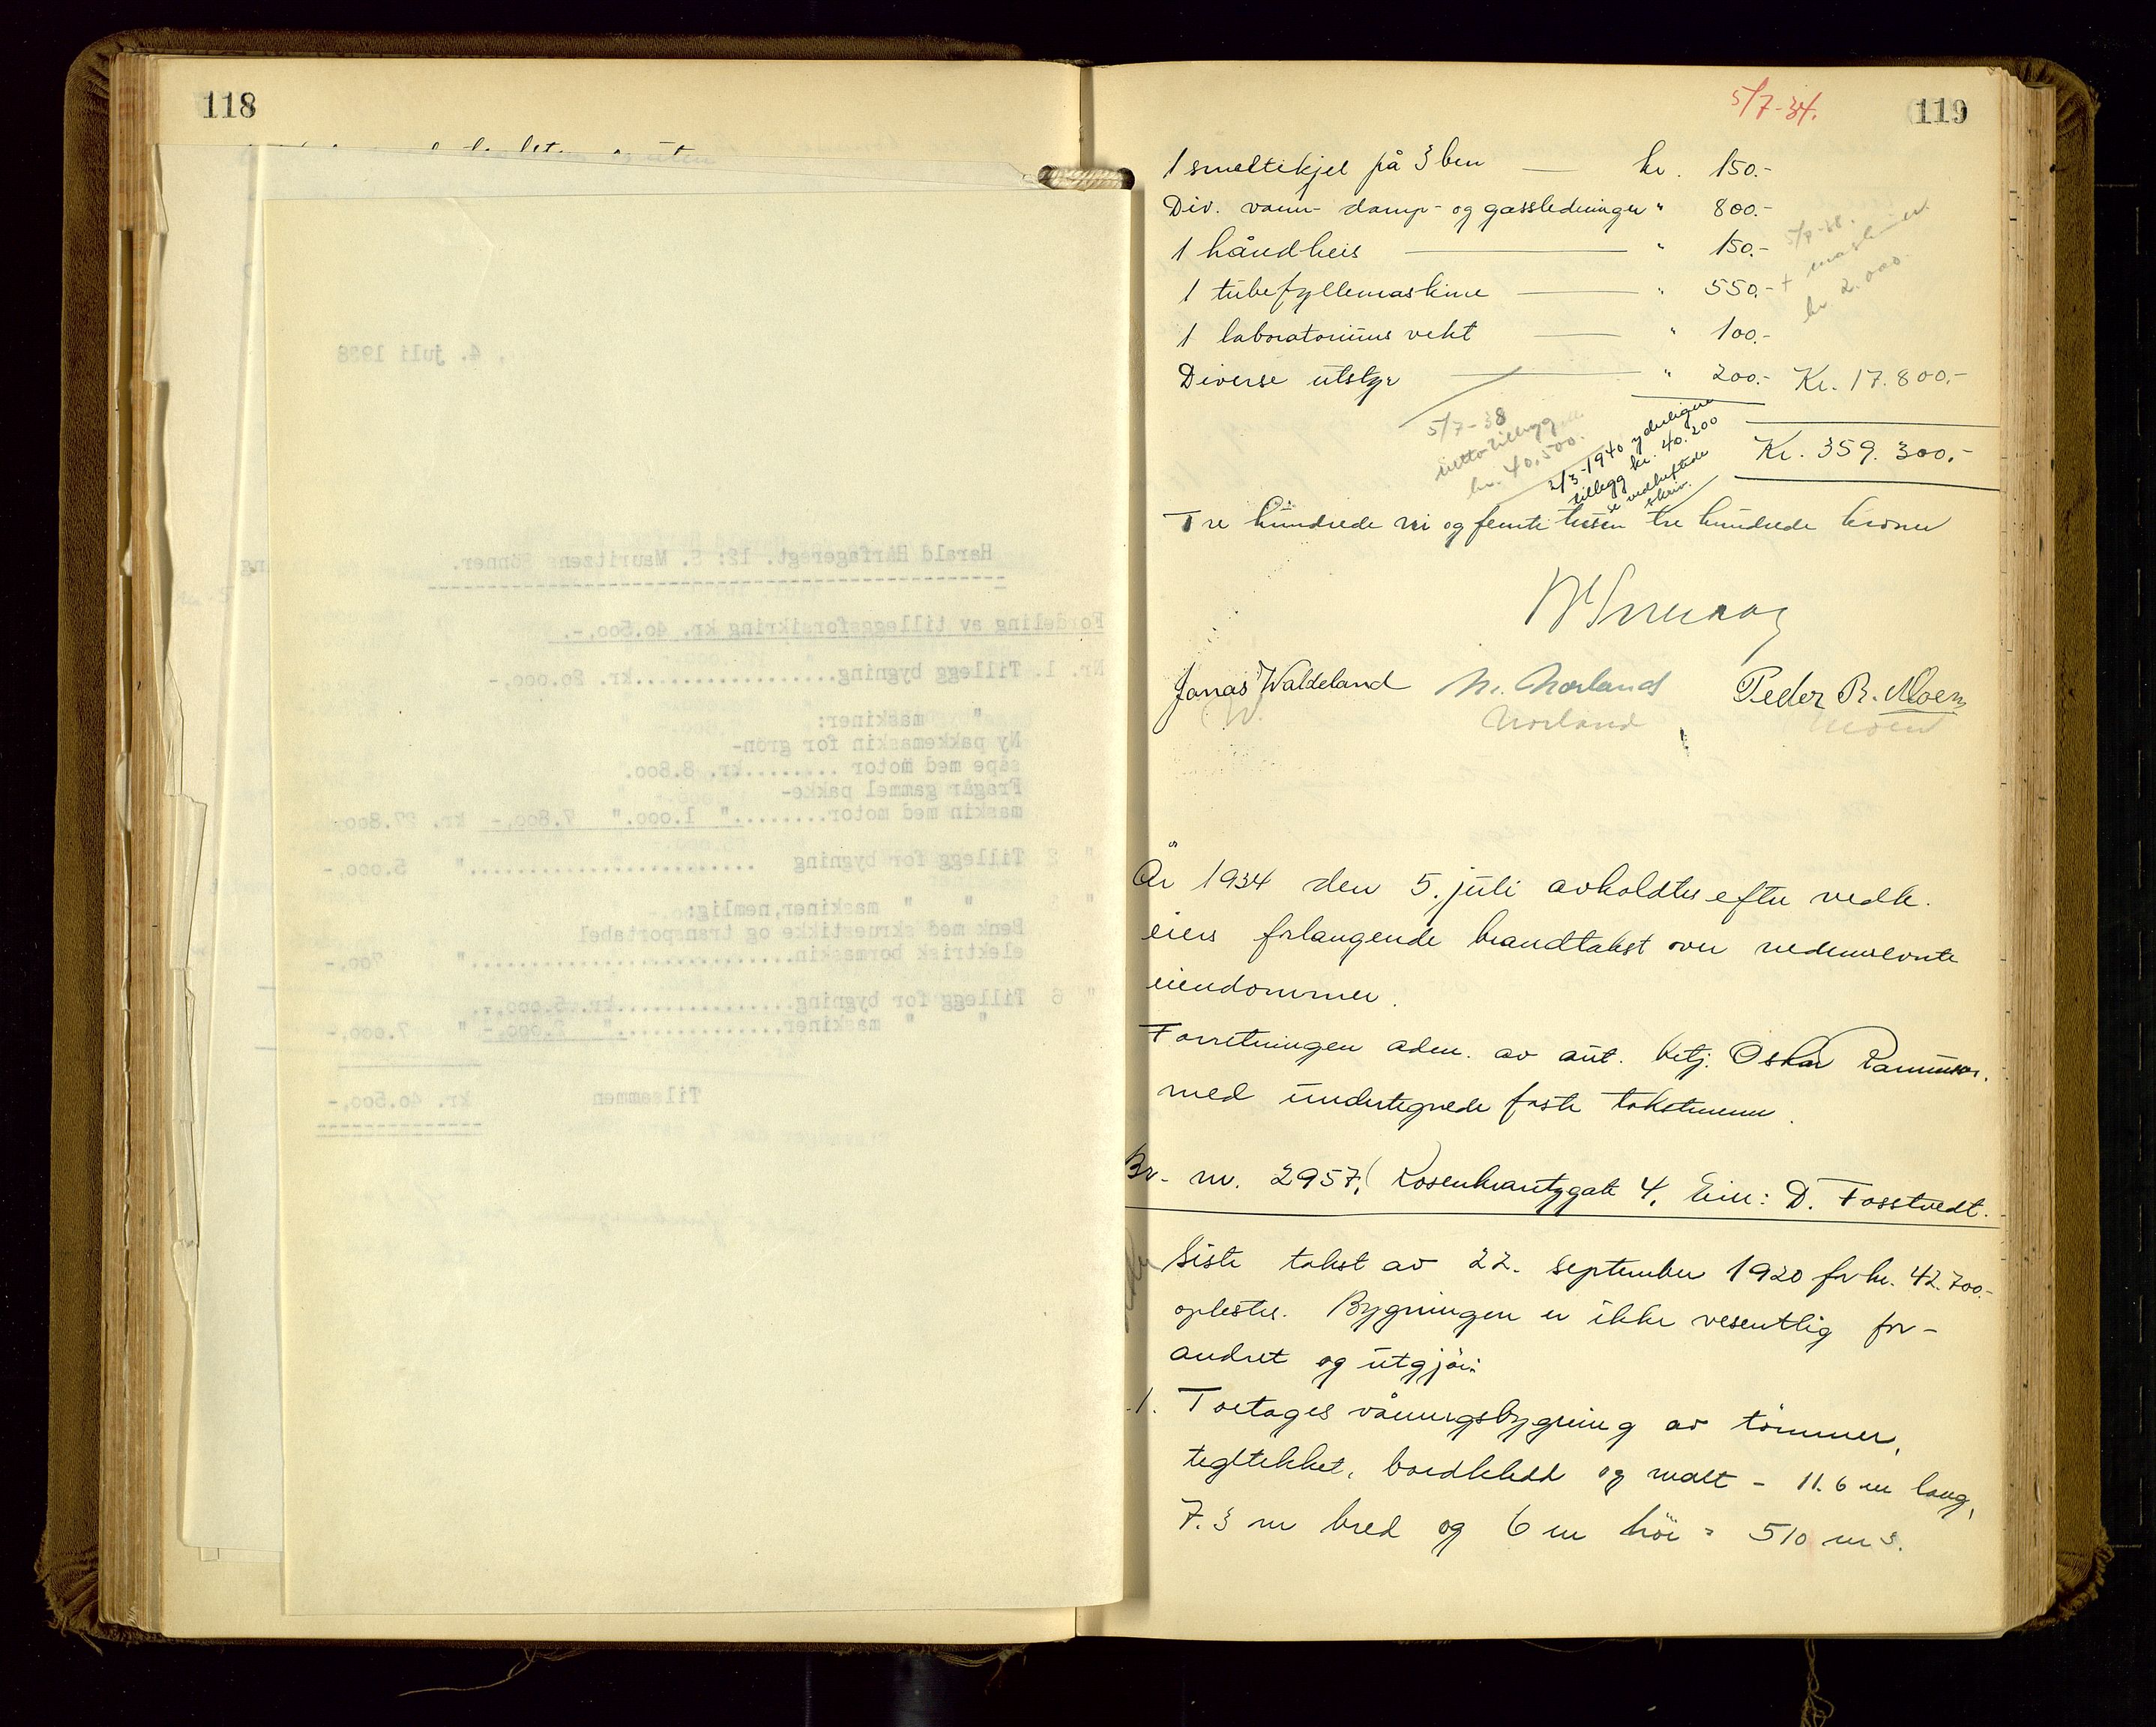 118
og uten
, 4. juli 1938
Harald Hårfageregt. 12: S. Mauritzens Sönner.
Fordeling av tilleggsforsikring kr. 40.500,-.
Nr. 1. Tillegg bygning.................kr. 20.000,-
" maskiner:
Ny pakkemaskin for grön-
såpe med motor .........kr. 8.800.
Fragår gammel pakke-
maskin med motor........" 1.000." 7.800,- kr. 27.800
" 2 Tillegg for bygning ........................" 5.000,-
" 3 " " maskiner,nemlig:
Benk med skruestikke og transportabel
elektrisk bormaskin............................" 700,-
" 6 Tillegg for bygning...............kr. 5.000,-
" " maskiner..............." 2.000,- " 7.000,-
Tilsammen kr. 40.500,-
5/7-34.
119
1 smeltekjel på 3 ben — kr. 150.-
Div. vann- damp- og gassledninger " 800.-
1 håndheis — " 150.-
1 tubefyllemaskine — " 550.-
1 laboratoriums vekt — " 100.-
Diverse utstyr — " 200.- Kr. 17.800,-
5/7-38.
+ maskiner
kr 2.000.
5/7-38
nettotillegg
kr. 40,500.
2/3-1940 yderligere
tillegg kr. 40.200
se vedheftede
skriv.
Kr. 359.300,-
Tre hundrede ni og femti tusen tre hundrede kroner
Jonas Waldeland N. Norland Peder R. Moen
W. Norland Moen
År 1934 den 5. juli avholdtes efter vedk.
eiers forlangende brandtakst over nedennevnte
eiendommer.
Forretningen adm. av aut. betj. Oskar
med undertegnede faste takstmenn.
Br. nr. 2957, Rosenkrantzgate 4, Eier: D. Fosstvedt.
Siste takst av 22. september 1920 for kr. 42.700.-
oplestes. Bygningen er ikke vesentlig for-
andret og utgjör:
1. Toetages våningsbygning av tömmer,
tegltekket, bordkledd og malt - 11.6 m lang,
7.3 m bred og 6 m höi = 510 m3.